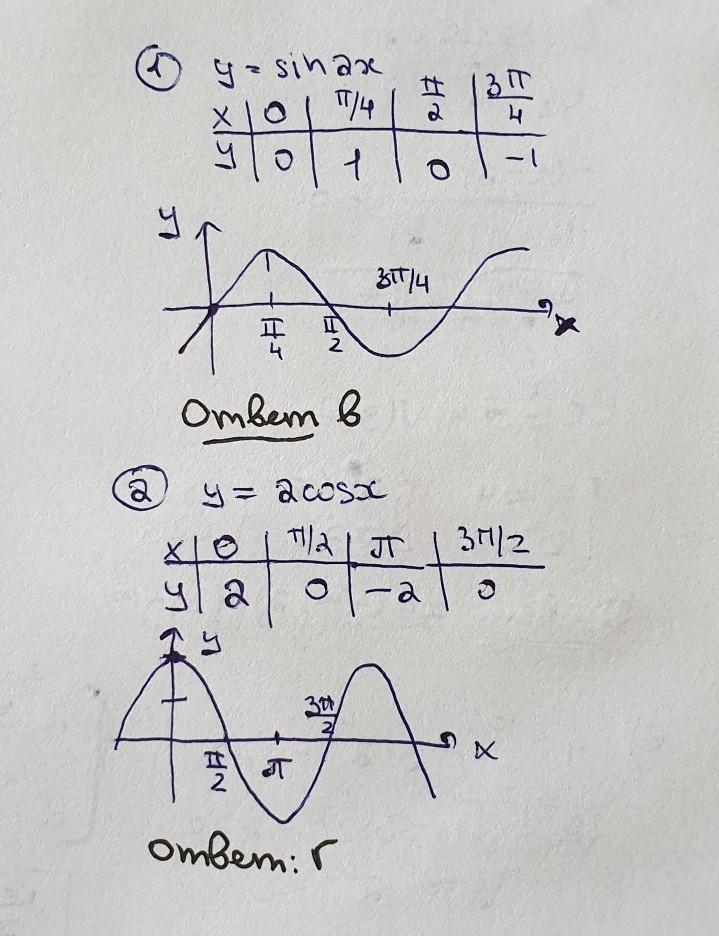 1 y = sin2x
x | 0 | π/4 | π/2 | 3π/4
y | 0 | 1 | 0 | -1
y
3π/4
π/4 π/2 x
Ответ в
2 y = 2cosx
x | 0 | π/2 | π | 3π/2
y | 2 | 0 | -2 | 0
y
3π/2
π/2 π x
Ответ: г